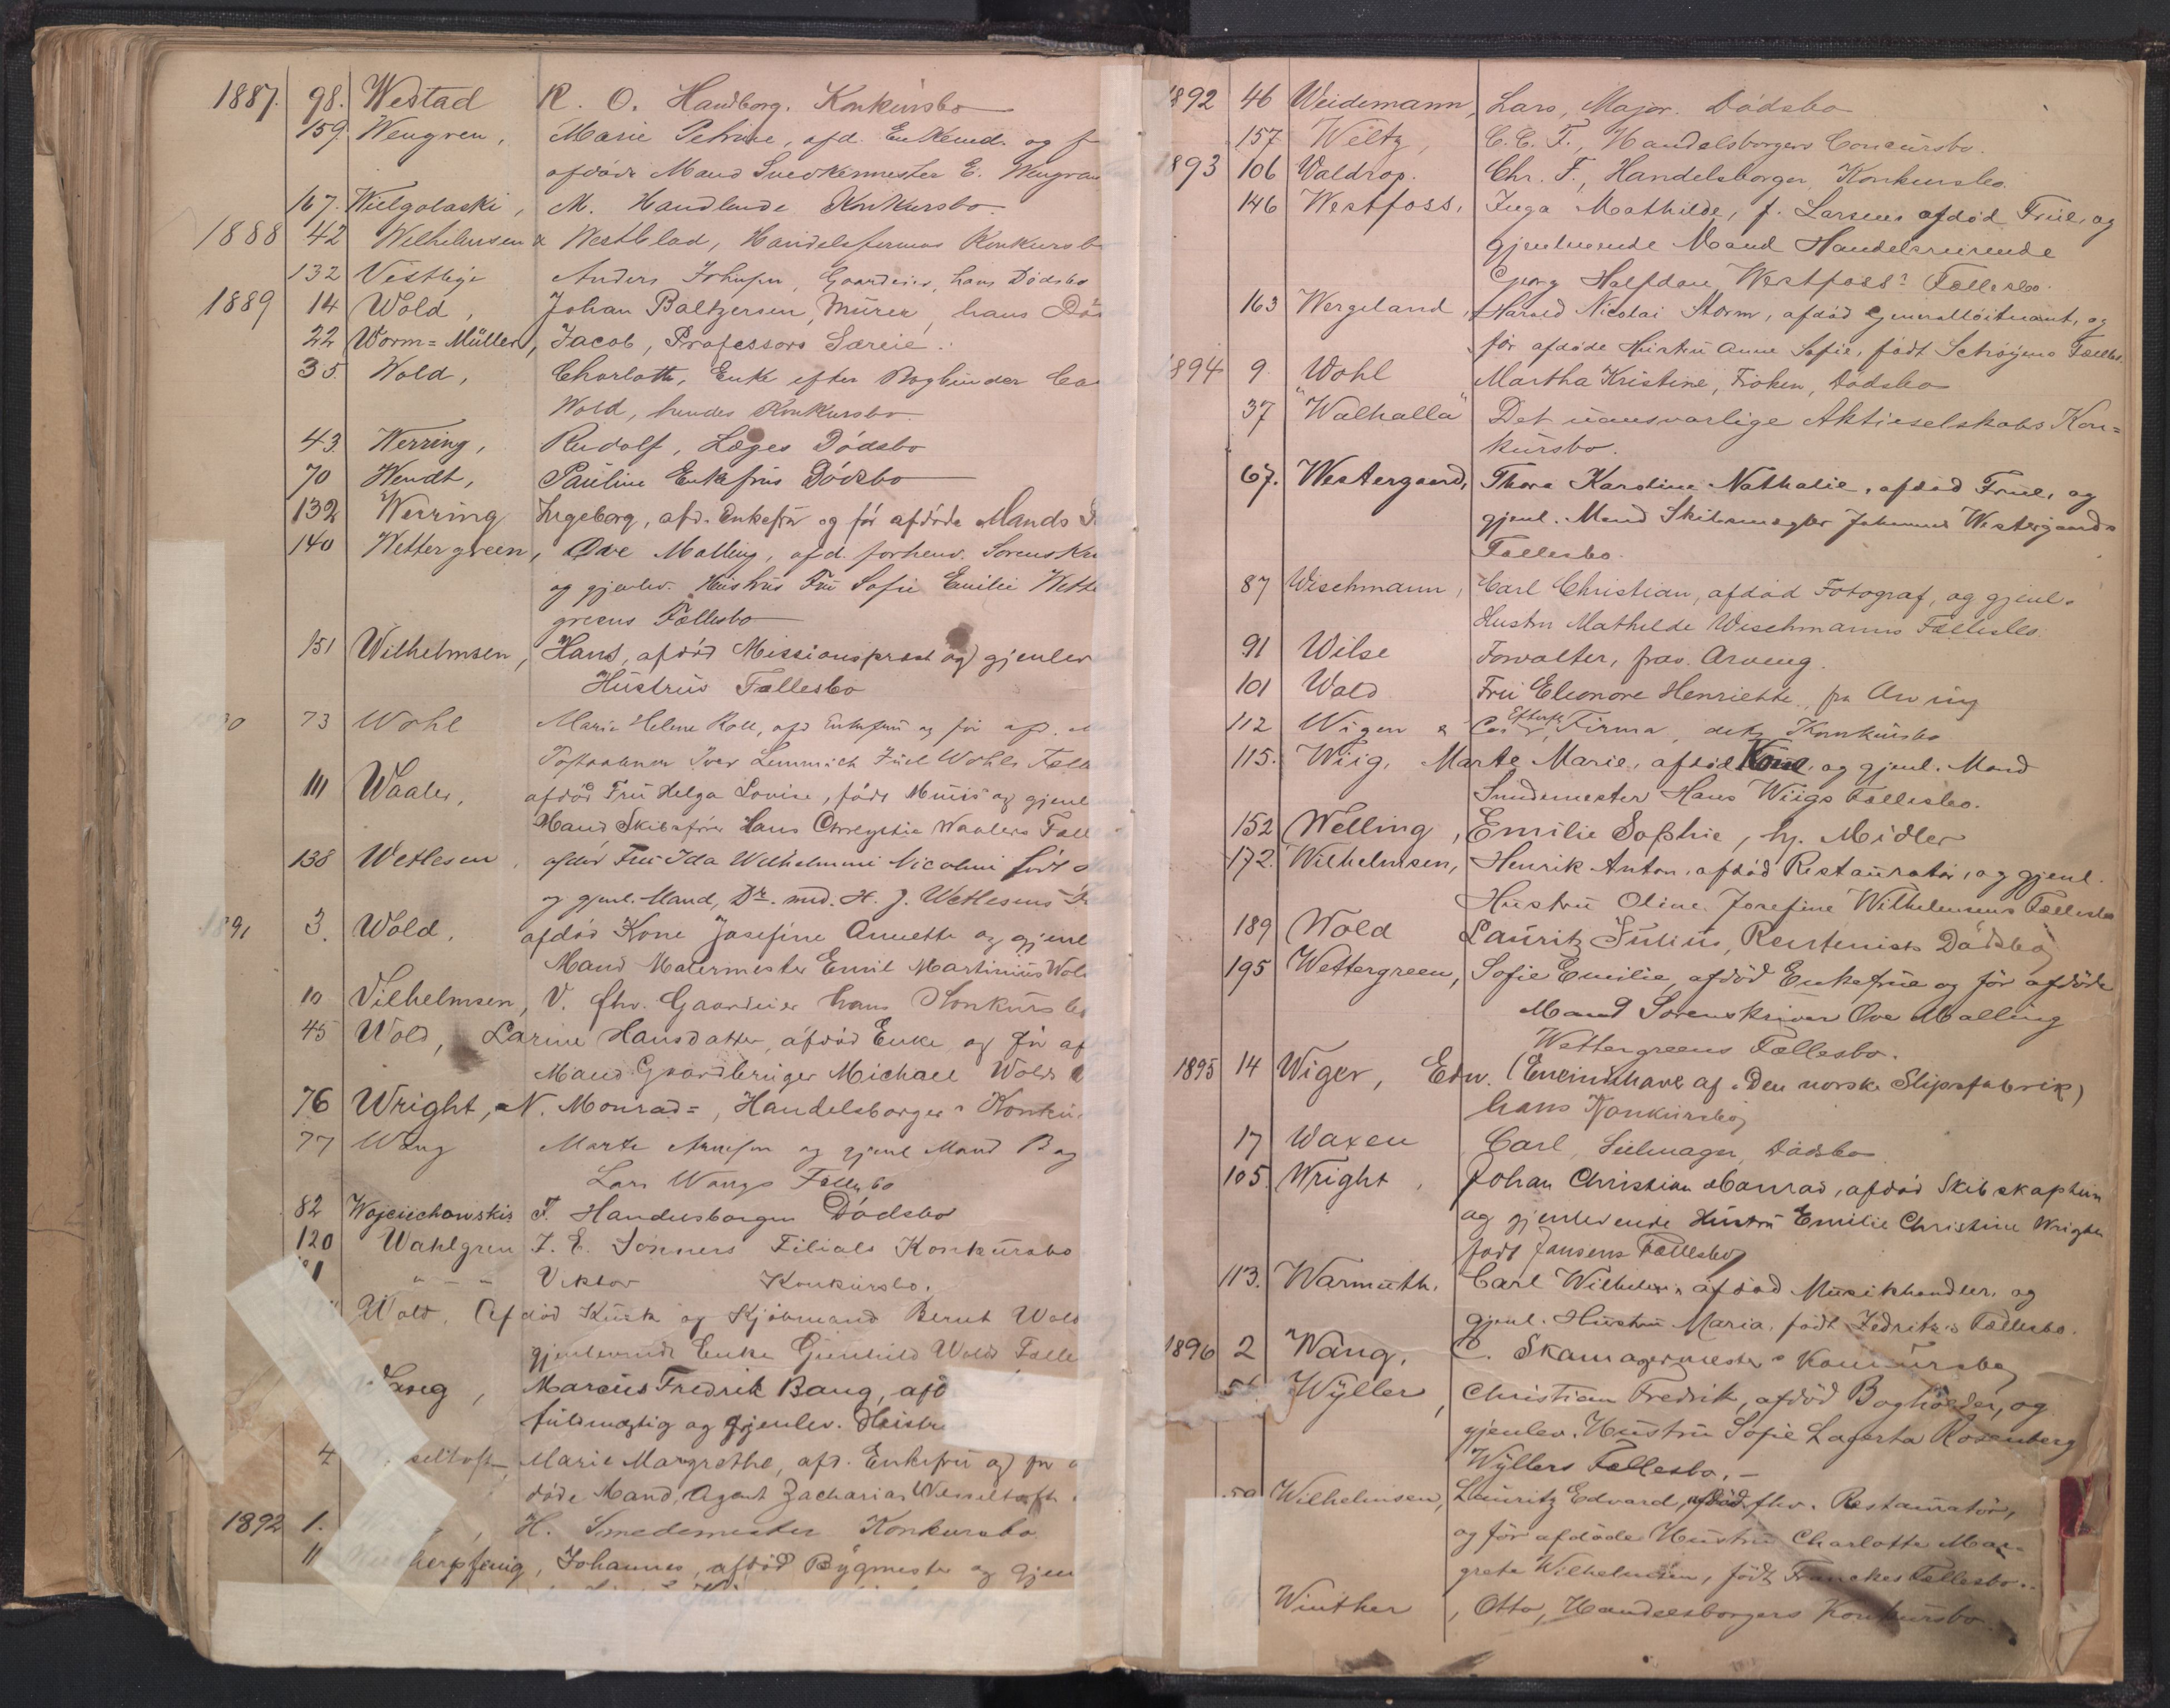 1887. 98. Westad R. O. Handborg. Konkursbo
159. Wengren, Marie Petrine, afd. Enkemd. og f
afdøde Mand E.
167. Wielgolaski, M. Handlende Konkursbo.
1888 42 Wilhelmsen & Westblad, Handelsfirmas Konkursb
132 Vestbye Anders Gaardeier, hans Dødsbo
1889 14 Wold, Johan Baltzersen, Murer, hans Dø
22 Worm=Müller, Jacob, Professors Særeie.
35. Wold, Charlotte, Enke efter Bogbinder Ca
Wold, hendes Konkursbo
43. Werring, Rudolf, Læges Dødsbo
70 Wendt, Pauline Enkefrus Dødsbo
132 Werring Ingeborg, afd. Enkefru og før afdøde Mands
140 Wettergreen, Ove Malling, afd. forhenv. Sorenskr
og gjenlev. Hustrus Fru Sofie Emilie Wette
greens Fællesbo
151 Wilhelmsen, Hans, afdød Missionsprest og gjenlev
Hustrus Fællesbo
90 73 Wohl Marie Helene Roll, afd Enkefru og før afd.
Iver Juel Wohls Fælle
111 Waaler, afdød Fru Helga Lovise, født og gjenl
Mand Skibsfører Hans Waalers Fælle
138 Wetlesen, afdød Fru Ida Wilhelmine Nicoline født
og gjenl. Mand, Dr. med. H. J. Wetlesens
1891 3. Wold, afdød Kone Josefine Annette og gjenl
Mand Malermester Emil Martinius Wol
10 Vilhelmsen, V. fhv. Gaardeier hans Konkursbo
45 Wold, Larine Hansdatter, afdød Enke og før af
Mand Gaardbruger Michael Wolds
76 Wright, N. Monrad=, Handelsborgers Konku
77 Wang Marte og gjenl Mand
Lars Wangs Fællesbo
82 Wojciechowskis F. Handelsborgers Dødsbo
120 Wahlgren I. E. Sønners Filials Konkursbo
" - - - Viktor Konkursbo.
Wold, Afdød Kusk og Kjøbmand Bernt Wold
gjenlevende Enke Gunhild Wolds Fælle
Marcus Fredrik Bang, afd
fuldmægtig og gjenlev. Hustru
4 Marie Margrethe, afd. Enkefru og før a
døde Mand, Agent Zacharias Wesseltofts
1892 1. H. Smedemester Konkursbo
11 Johannes, afdød Bygmester og gjen
1892 46 Weidemann, Lars, Major. Dødsbo
157. Weltz, C. C. F., Handelsborgers Concursbo.
1893 106 Waldrop. Chr. F., Handelsborger, Konkursbo.
146 Westfoss, Inga Mathilde, f. Larsens afdød Frue, og
gjenlevende Mand Handelsreisende
Georg Halfdan Westfoss's Fællesbo.
163 Wergeland, Harald Nicolai Storm, afdød Generalløitnant, og
før afdøde Hustru Anne Sofie, født Schøyens Fællesb.
1894 9. Wohl Martha Kristine, Frøken, Dødsbo
37 "Walhalla" Det uansvarlige Aktieselskabs Kon=
kursbo.
67. Westergaard, Thora Karoline Nathalie, afdød Frue, og
gjenl. Mand Skibsmægler Johannes Westergaards
Fællesbo.
87 Wischmann, Carl Christian, afdød Fotograf, og gjenl.
Hustru Mathilde Wischmanns Fællesbo.
91 Wilse Forvalter, frav. Arving.
101 Wold Fru Eleonore Henriette, fr. Arving
112 Wigen & Co's Efterf., Firma, dets Konkursbo
115. Wiig, Marte Marie, afdød Kone, og gjenl. Mand
Smedemester Hans Wiigs Fællesbo.
152 Welling, Emilie Sophie, hj. Midler
172. Wilhelmsen, Henrik Anton, afdød Restauratør, og gjenl.
Hustru Oline Josefine Wilhelmsens Fællesbo
189 Wold Lauritz Julius, Rentenists Dødsbo
195 Wettergreen, Sofie Emilie, afdød Enkefrue og før afdøde
Mand Sorenskriver Ove Malling
Wettergreens Fællesbo.
1895 14 Wiger, Edw. (Eneindehaver af "Den norske Slipsfabrik)
hans Konkursbo
17 Waxen Carl, Dødsbo
105. Wright, Johan Christian Monrad, afdød Skibskaptein
og gjenlevende Hustru Emilie Christine Wright
født Jansens Fællesbo
113. Warmuth. Carl Wilhelm, afdød Musikhandler, og
gjenl. Hustru Maria, født Fællesbo.
1896 2 Wang, C. Skomagermesters Konkursbo
Wyller, Christian Fredrik, afdød Bogholder, og
gjenlev. Hustru Sofie Lagerta Rosenberg
Wyllers Fællesbo. -
Wilhelmsen, Lauritz Edvard, afdød fhv. Restauratør,
og før afdøde Hustru Charlotte Mar=
grete Wilhelmsen, født Franckes Fællesbo.
Winther, Otto, Handelsborgers Konkursbo.